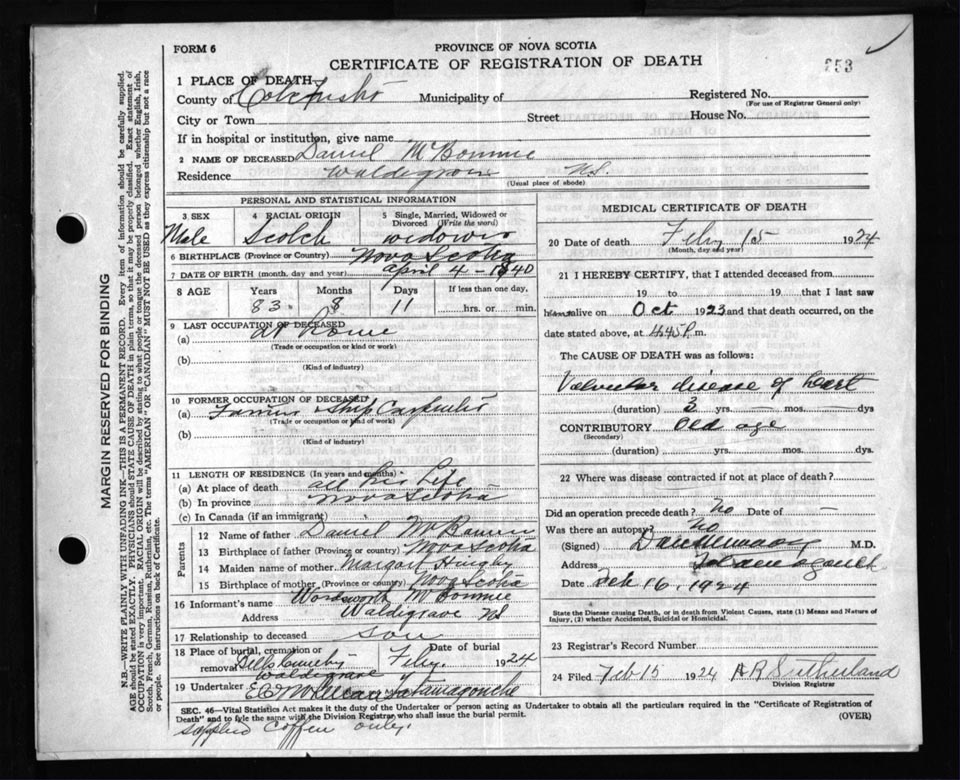 FORM 6
PROVINCE OF NOVA SCOTIA
CERTIFICATE OF REGISTRATION OF DEATH
253
1 PLACE OF DEATH
County of Colchester Municipality of Registered No.
(For use of Registrar General only)
City or Town Street House No.
If in hospital or institution, give name
2 NAME OF DECEASED Daniel McBonnie
Residence N.S.
(Usual place of abode)
PERSONAL AND STATISTICAL INFORMATION
3 SEX 4 RACIAL ORIGIN 5 Single, Married, Widowed or Divorced (Write the word)
Male Scotch widower
6 BIRTHPLACE (Province or Country) Nova Scotia
7 DATE OF BIRTH (month, day and year) April 4 - 1840
8 AGE Years Months Days If less than one day,
83 8 11 hrs. or min.
9 LAST OCCUPATION OF DECEASED
(a) at Home
(Trade or occupation or kind or work)
(b)
(Kind of industry)
10 FORMER OCCUPATION OF DECEASED
(a) Farmer Ship Carpenter
(Trade or occupation or kind of work)
(b)
(Kind of industry)
11 LENGTH OF RESIDENCE (In years and months)
(a) At place of death all his Life
(b) In province Nova Scotia
(c) In Canada (if an immigrant)
Parents
12 Name of father Daniel
13 Birthplace of father (Province or country) Nova Scotia
14 Maiden name of mother Margaret
15 Birthplace of mother (Province or country) Nova Scotia
16 Informant's name Wordsworth McBonnie
Address Waldegrave NS
17 Relationship to deceased son
18 Place of burial, cremation or removal Date of burial
Waldegrave Feby. 1924
19 Undertaker Tatamagouche
MEDICAL CERTIFICATE OF DEATH
20 Date of death Feby 15 1924
(Month, day and year)
21 I HEREBY CERTIFY, that I attended deceased from
19 to 19 that I last saw
him alive on Oct 1923 and that death occurred, on
date stated above, at 4.45 P. m.
The CAUSE OF DEATH was as follows:
Valvular disease of heart
(duration) 3 yrs. — mos. — dys
CONTRIBUTORY Old age
(Secondary)
(duration) yrs. mos. dys.
22 Where was disease contracted if not at place of death?
Did an operation precede death? No Date of —
Was there an autopsy? No
(Signed) M.D.
Address Tatamagouche
Date Feb 16, 1924
State the Disease causing Death, or in death from Violent Causes, state (1) Means and Nature of
Injury, (2) whether Accidental, Suicidal or Homicidal.
23 Registrar's Record Number
24 Filed Feb 15 1924 A R Sutherland
Division Registrar
SEC. 46—Vital Statistics Act makes it the duty of the Undertaker or person acting as Undertaker to obtain all the particulars required in the "Certificate of Registration of
Death" and to fyle the same with the Division Registrar who shall issue the burial permit. (OVER)
supplied Coffin only.
MARGIN RESERVED FOR BINDING
N.B.—WRITE PLAINLY WITH UNFADING INK—THIS IS A PERMANENT RECORD. Every item of information should be carefully supplied.
AGE should be stated EXACTLY. PHYSICIANS should STATE CAUSE OF DEATH in plain terms, so that it may be properly classified. Exact statement of
OCCUPATION is very important. RACIAL ORIGIN will be described by stating to what people or tongue the deceased person belonged whether English, Irish,
Scotch, French, German, Russian, Ruthenian, etc. The terms "AMERICAN" OR "CANADIAN" MUST NOT BE USED as they express citizenship but not a race
or people. See instructions on back of Certificate.